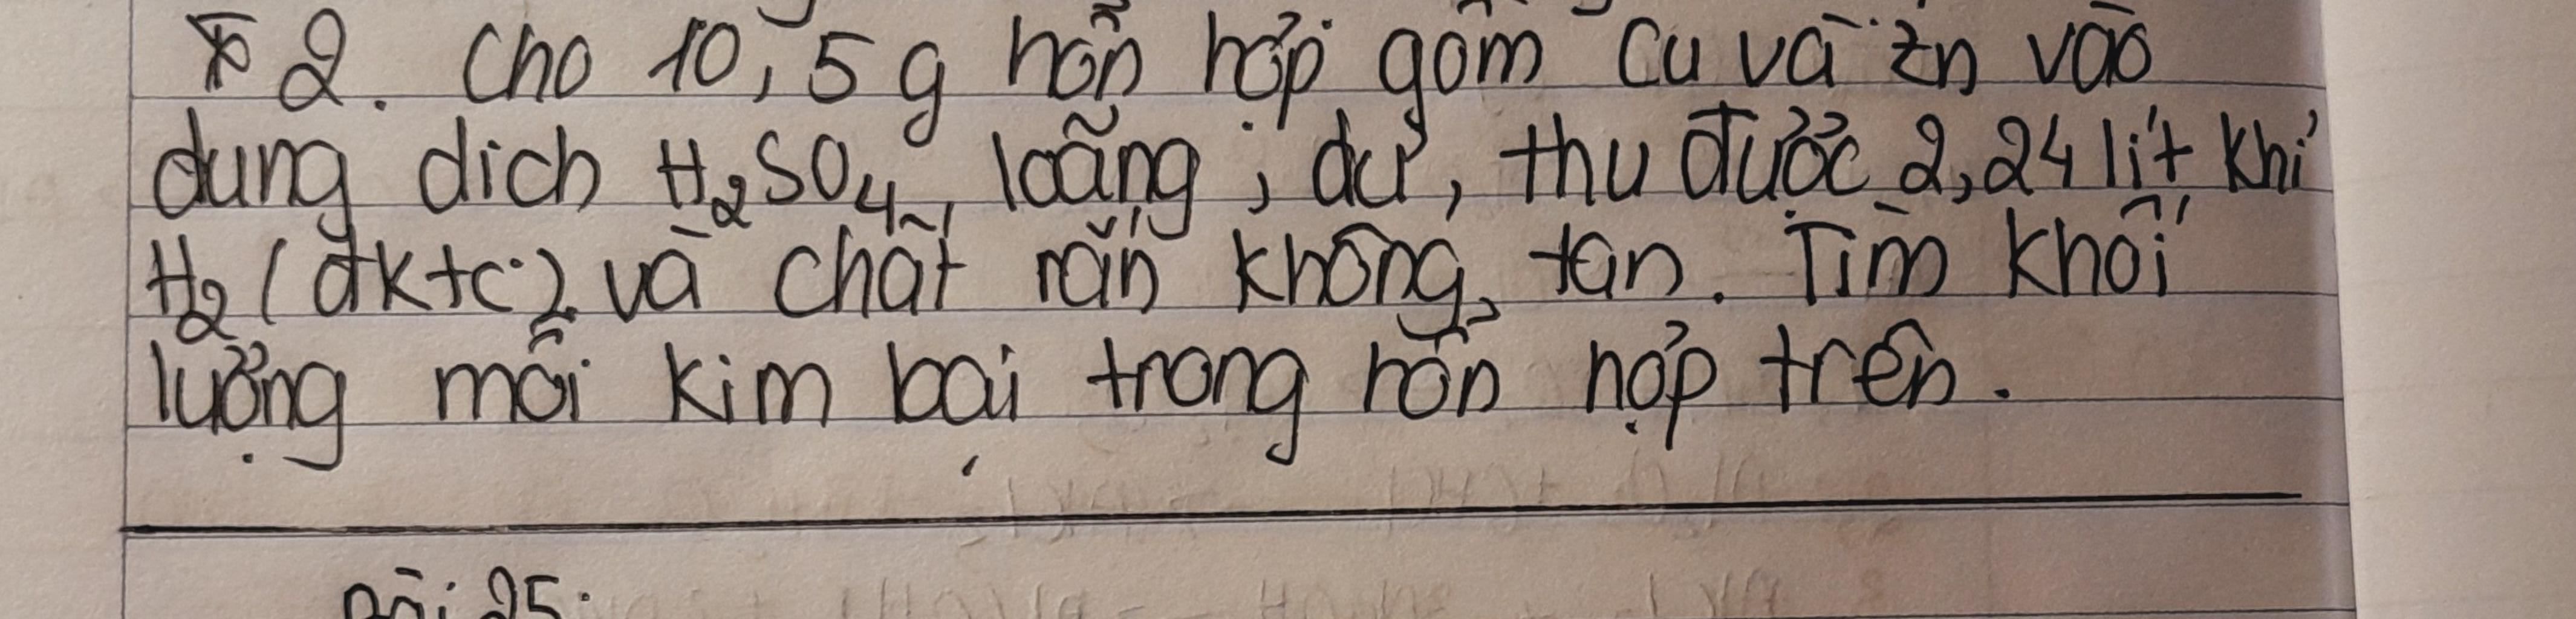 * 2. Cho 10,5 g hỗn hợp gồm Cu và Zn vào
dung dịch H₂SO₄ loãng, dư, thu được 2,24 lít khí
H₂ (đktc) và chất rắn không tan. Tìm khối
lượng mỗi kim loại trong hỗn hợp trên.
Bài 25: